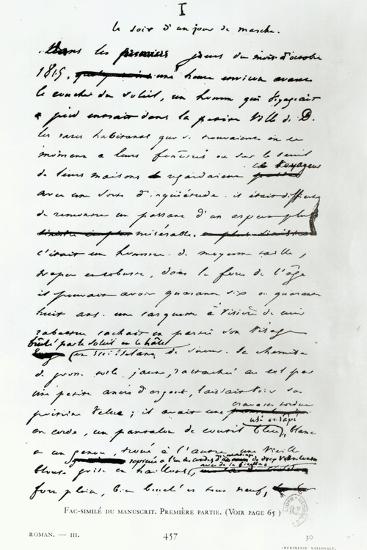 I
Le soir d'un jour de marche.
Dans les premiers jours du mois d'octobre
1815, une heure environ avant
le coucher du soleil, un homme qui voyageait
à pied entrait dans la petite ville de D.
les rares habitants qui se trouvaient en ce
moment à leurs fenêtres ou sur le seuil
de leurs maisons regardaient ce voyageur
avec une sorte d'inquiétude. il était difficile
de rencontrer un passant d'un aspect plus
misérable.
c'était un homme de moyenne taille,
trapu et robuste, dans la force de l'âge
il pouvait avoir quarante six ou quarante
huit ans. une casquette à visière de cuir
rabattue cachait en partie son visage
brûlé par le soleil et le hâle
et ruisselant de sueur. sa chemise
de grosse toile jaune, rattachée au col par
une petite ancre d'argent, laissait voir sa
poitrine velue; il avait une cravate tordue
usé et râpé
en corde, un pantalon de coutil bleu, blanc
à un genou, troué à l'autre, une vieille
blouse grise en haillons, rapiécée à l'un des coudes d'un morceau de drap vert cousu
avec de la ficelle
fort plein, bien bouclé et tout neuf,
FAC-SIMILÉ DU MANUSCRIT. PREMIÈRE PARTIE. (VOIR PAGE 65.)
ROMAN. — III.
457
30